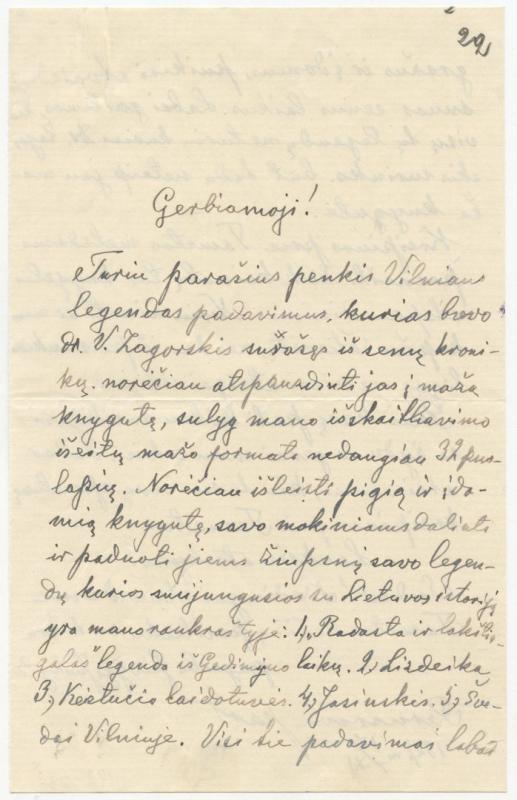 29
Gerbiamoji!
Turiu parašius penkis Vilniaus
legendas padavimus, kurias buvo
dr. V. Zagorskis surašęs iš senų kroni-
kų. norėčiau atspauzdinti jas į mažą
knygutę, sulyg mano išskaitliavimo
išeitų mažo formato nedaugiau 32 pus-
lapių. Norėčiau išleisti pigią ir įdo-
mią knygutę, savo mokiniams dalinti
ir paduoti jiems žiupsnį savo legen-
dų kurios susijungusios su Lietuvos istorija
yra mano rankraštyje: 1, „Radasta ir
legenda iš Gedimyno laikų. 2, Lizdeika
3, Kęstučio laidotuvės. 4, Jasinskis. 5, Šve-
dai Vilniuje. Visi tie padavimai labai